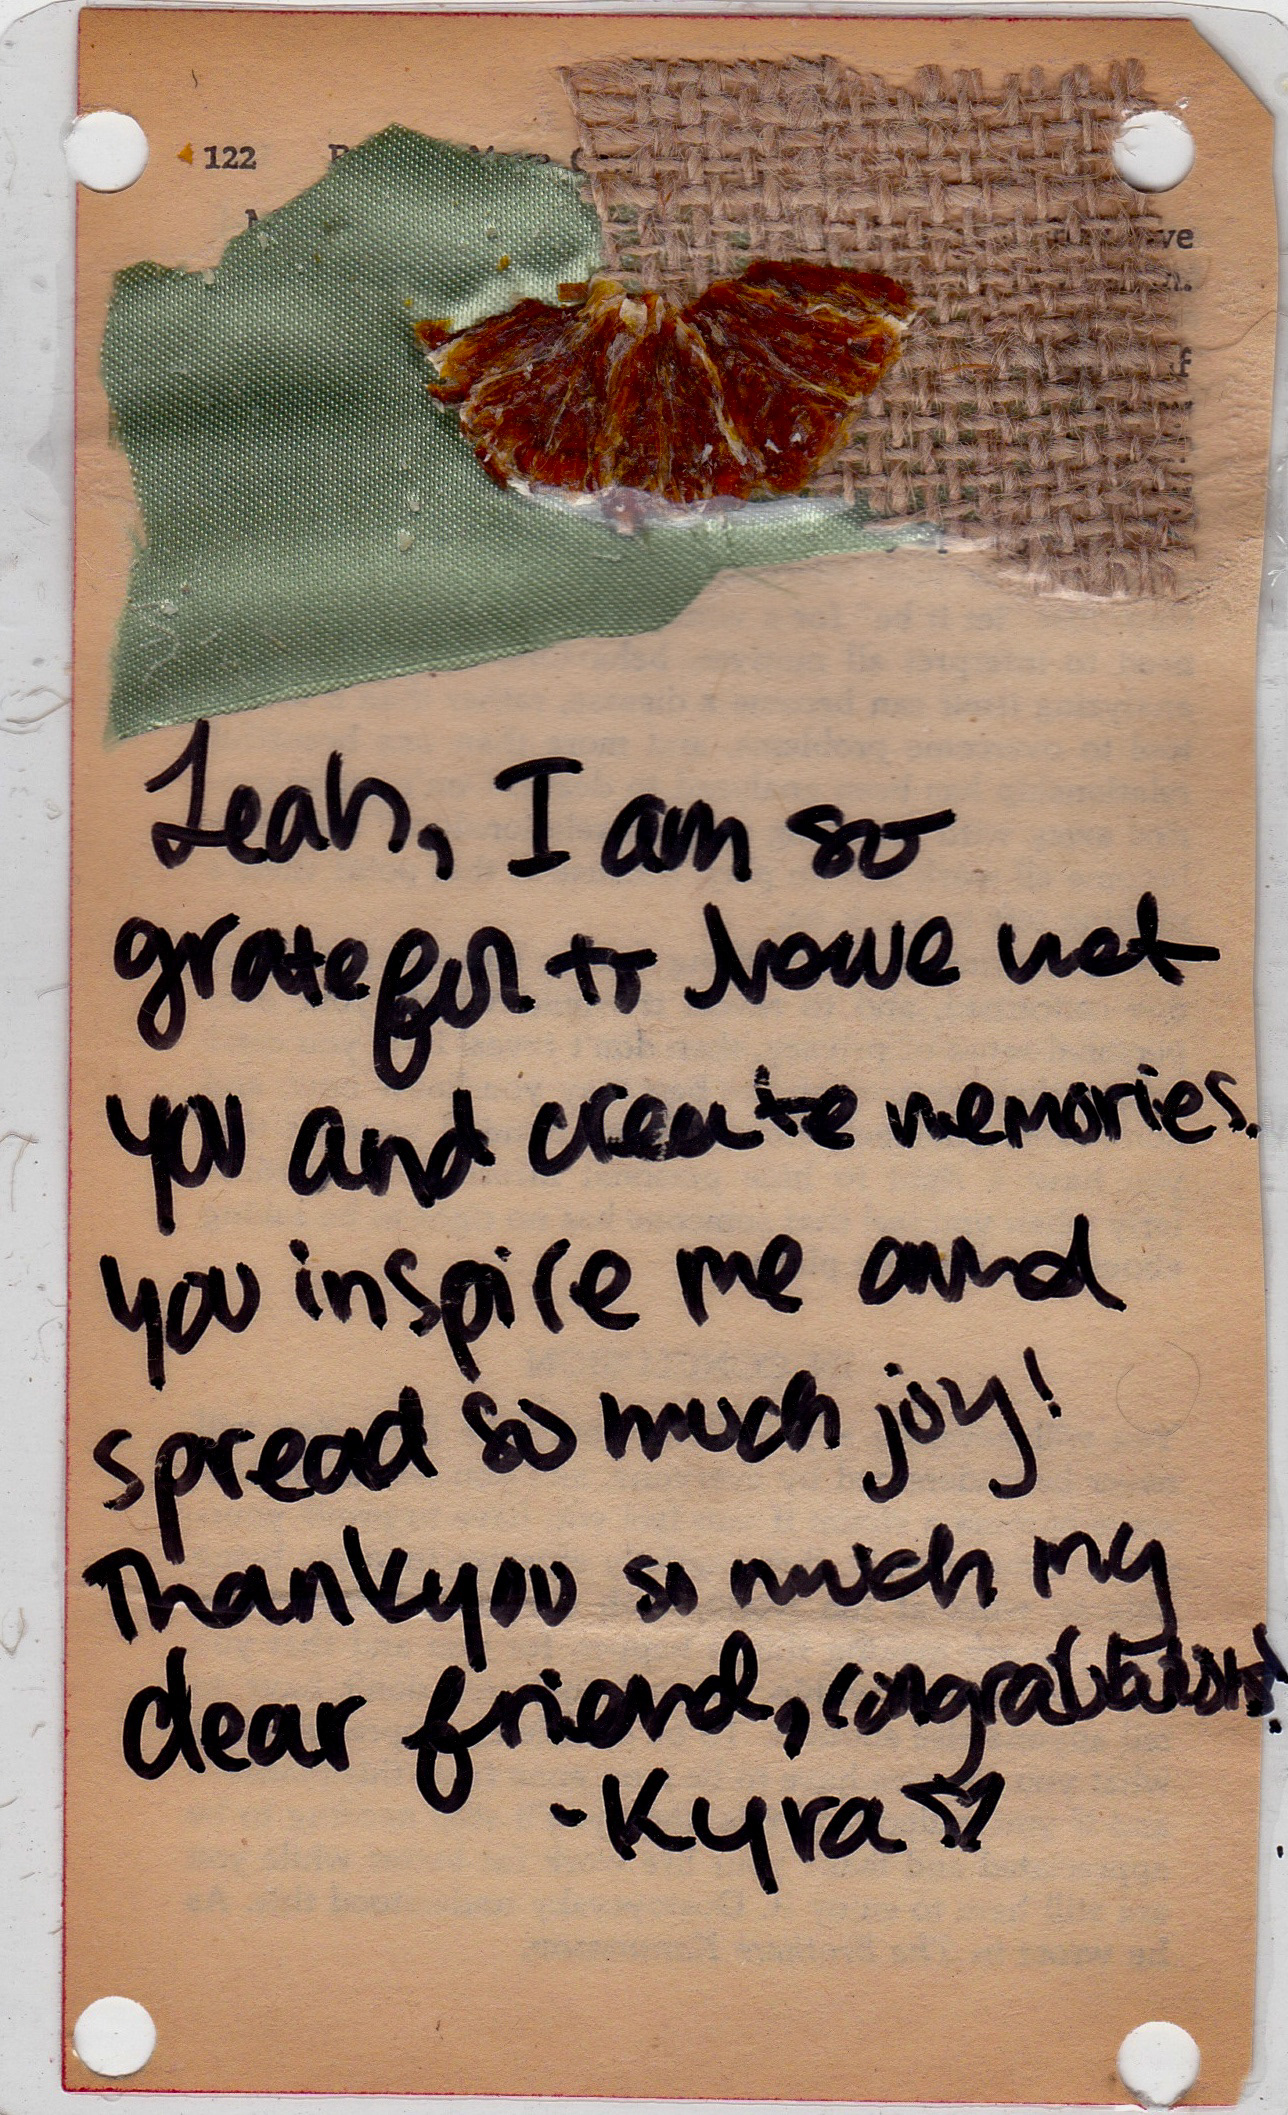 122
ve
Leah, I am so
grateful to have met
you and create memories.
you inspire me and
spread so much joy!
Thankyou so much my
dear friend, congratulations!
-Kyra ♡